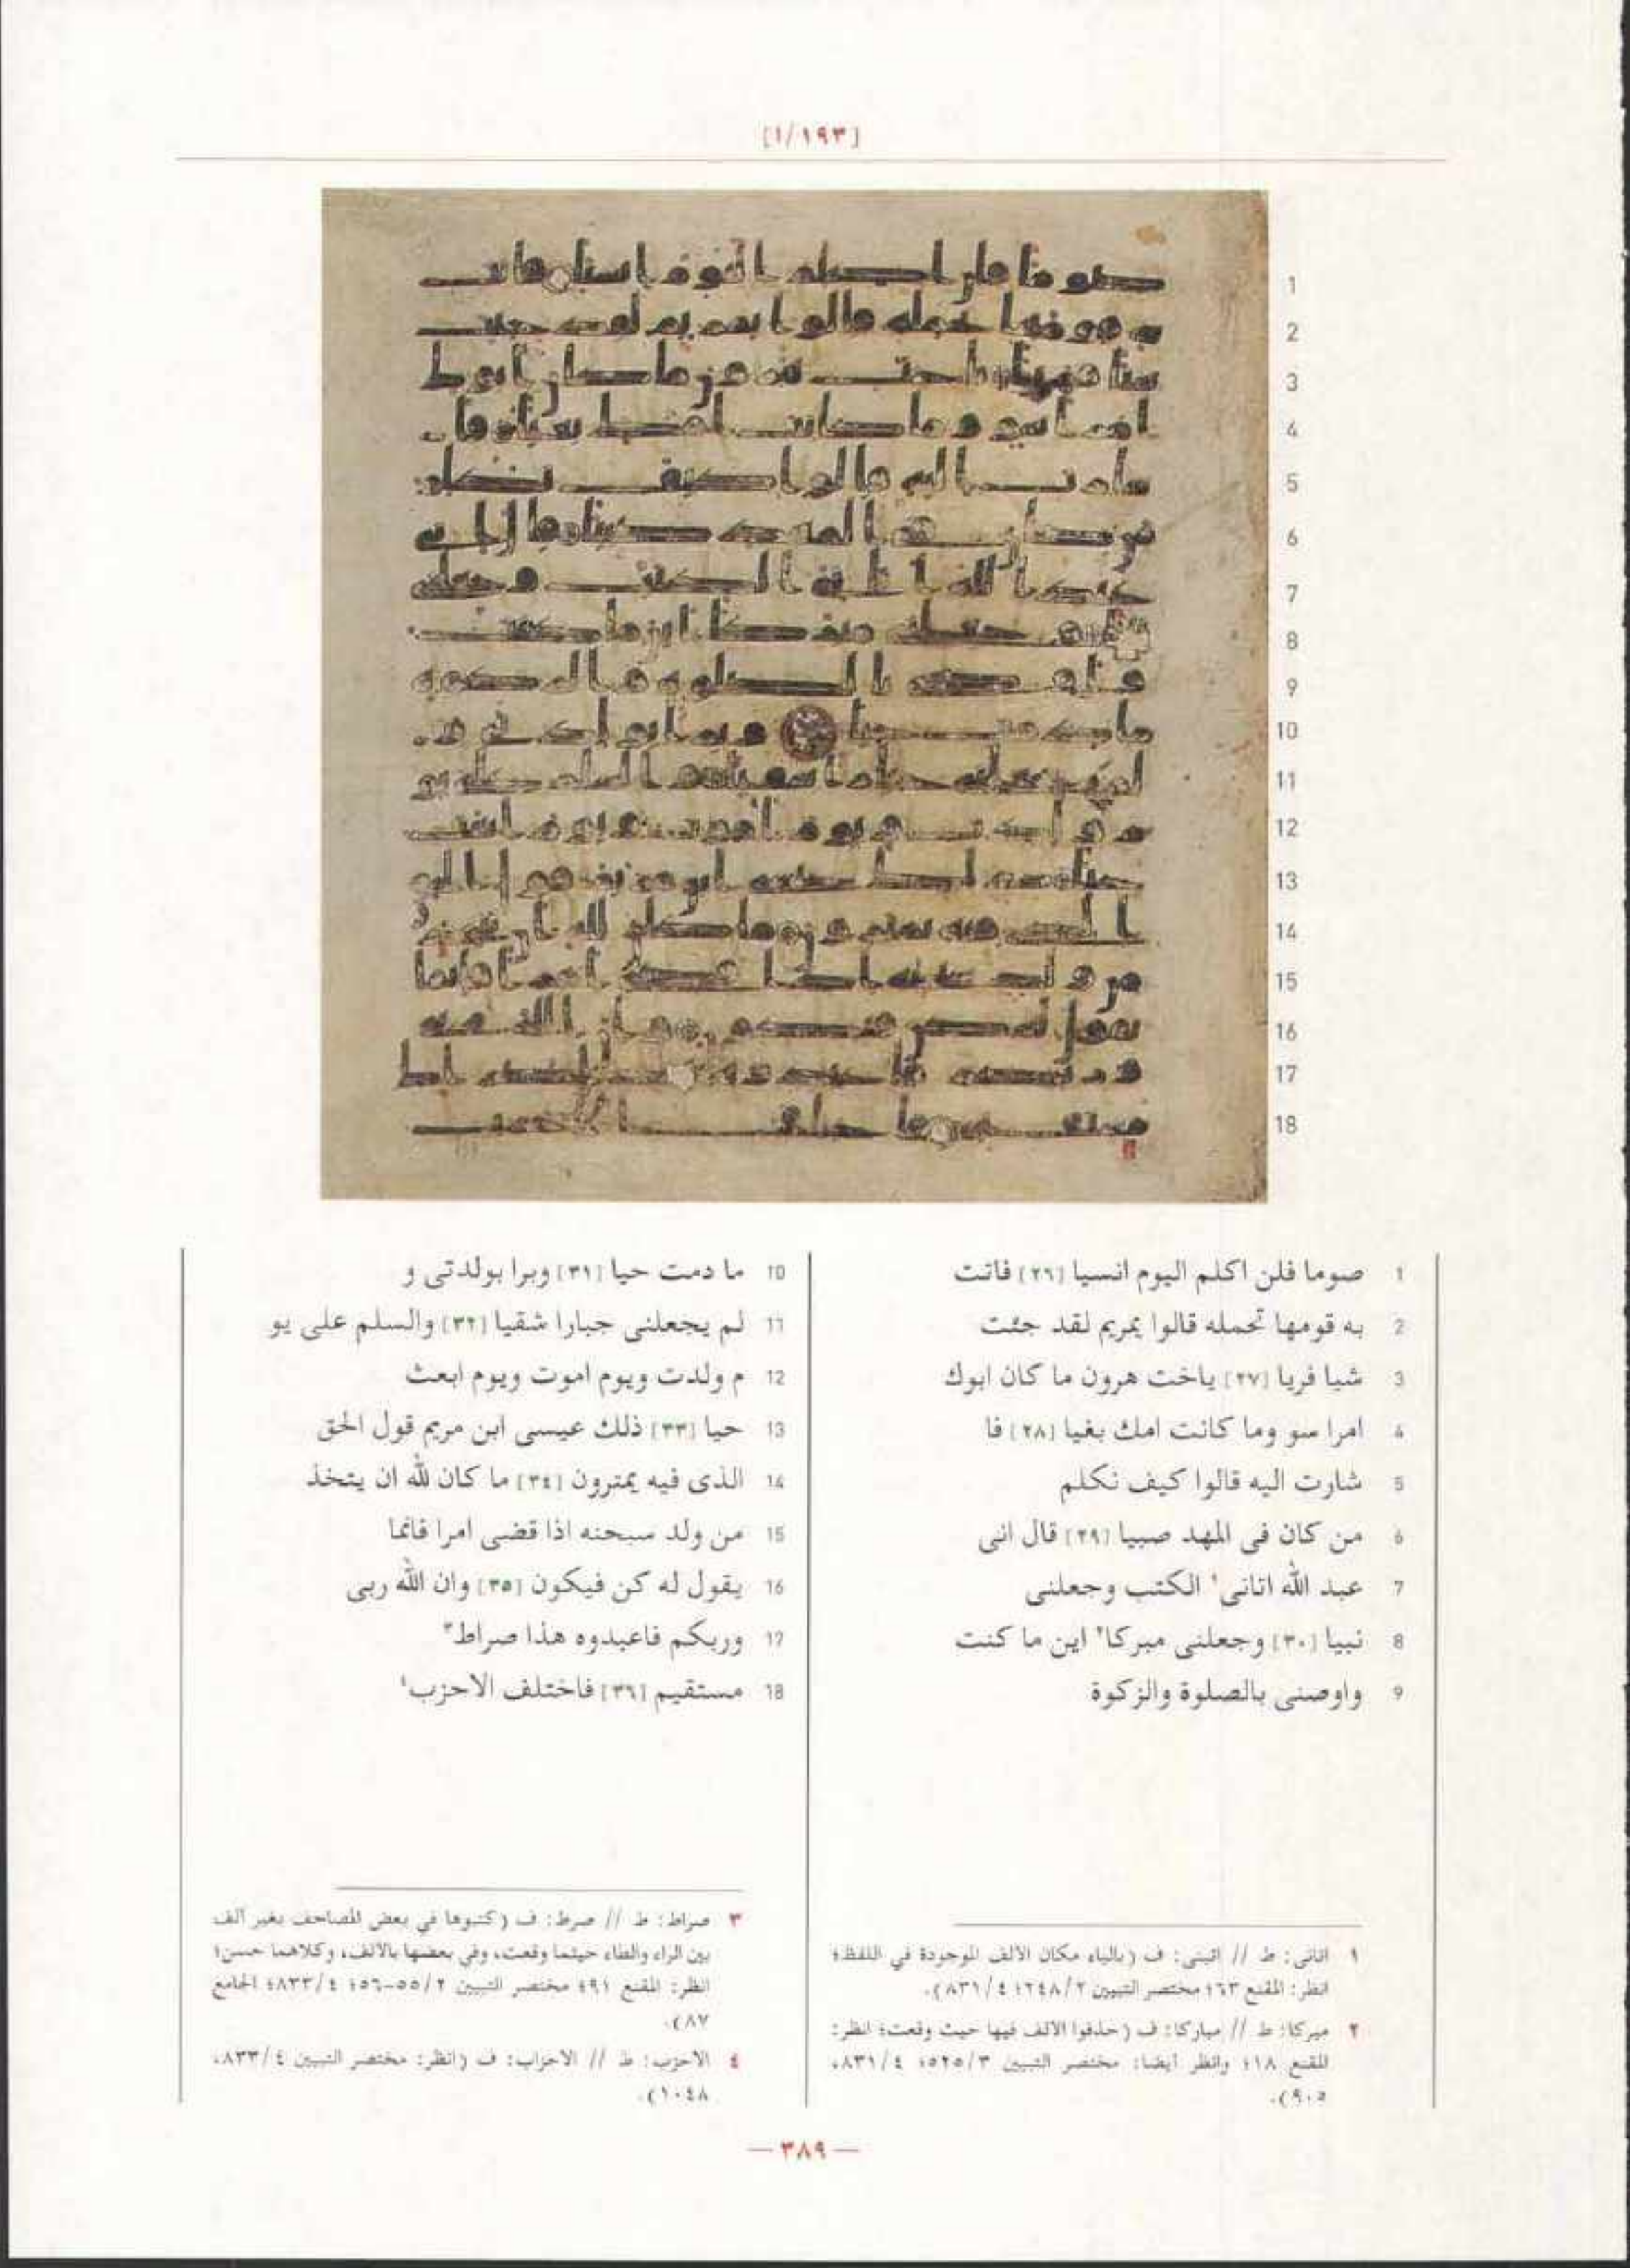 [١٩٣/١]
1 صوما فلن اكلم اليوم انسيا [٢٦] فاتت
2 به قومها تحمله قالوا يمريم لقد جئت
3 شيا فريا [٢٧] ياخت هرون ما كان ابوك
4 امرا سو وما كانت امك بغيا [٢٨] فا
5 شارت اليه قالوا كيف نكلم
6 من كان فى المهد صبيا [٢٩] قال انى
7 عبد الله اتانى١ الكتب وجعلنى
8 نبيا [٣٠] وجعلنى مبركا٢ اين ما كنت
9 واوصنى بالصلوة والزكوة
10 ما دمت حيا [٣١] وبرا بولدتى و
11 لم يجعلنى جبارا شقيا [٣٢] والسلم على يو
12 م ولدت ويوم اموت ويوم ابعث
13 حيا [٣٣] ذلك عيسى ابن مريم قول الحق
14 الذى فيه يمترون [٣٤] ما كان لله ان يتخذ
15 من ولد سبحنه اذا قضى امرا فانما
16 يقول له كن فيكون [٣٥] وان الله ربى
17 وربكم فاعبدوه هذا صراط٣
18 مستقيم [٣٦] فاختلف الاحزب٤
١ اتانى: ط // اتينى: ف (بالياء مكان الألف الموجودة في اللفظ؛
انظر: المقنع ٦٣؛ مختصر التبيين ٢٤٨/٢؛ ٨٣١/٤).
٢ مبركا: ط // مباركا: ف (حذفوا الألف فيها حيث وقعت؛ انظر:
المقنع ١٨؛ وانظر أيضا: مختصر التبيين ٥٢٥/٣؛ ٨٣١/٤،
٩٠٥).
٣ صراط: ط // صرط: ف (كتبوها في بعض المصاحف بغير ألف
بين الراء والطاء حيثما وقعت، وفي بعضها بالألف، وكلاهما حسن؛
انظر: المقنع ٩١؛ مختصر التبيين ٥٥/٢-٥٦؛ ٨٣٣/٤؛ الجامع
٨٧).
٤ الاحزب: ط // الاحزاب: ف (انظر: مختصر التبيين ٨٣٣/٤،
١٠٤٨).
— ٣٨٩ —